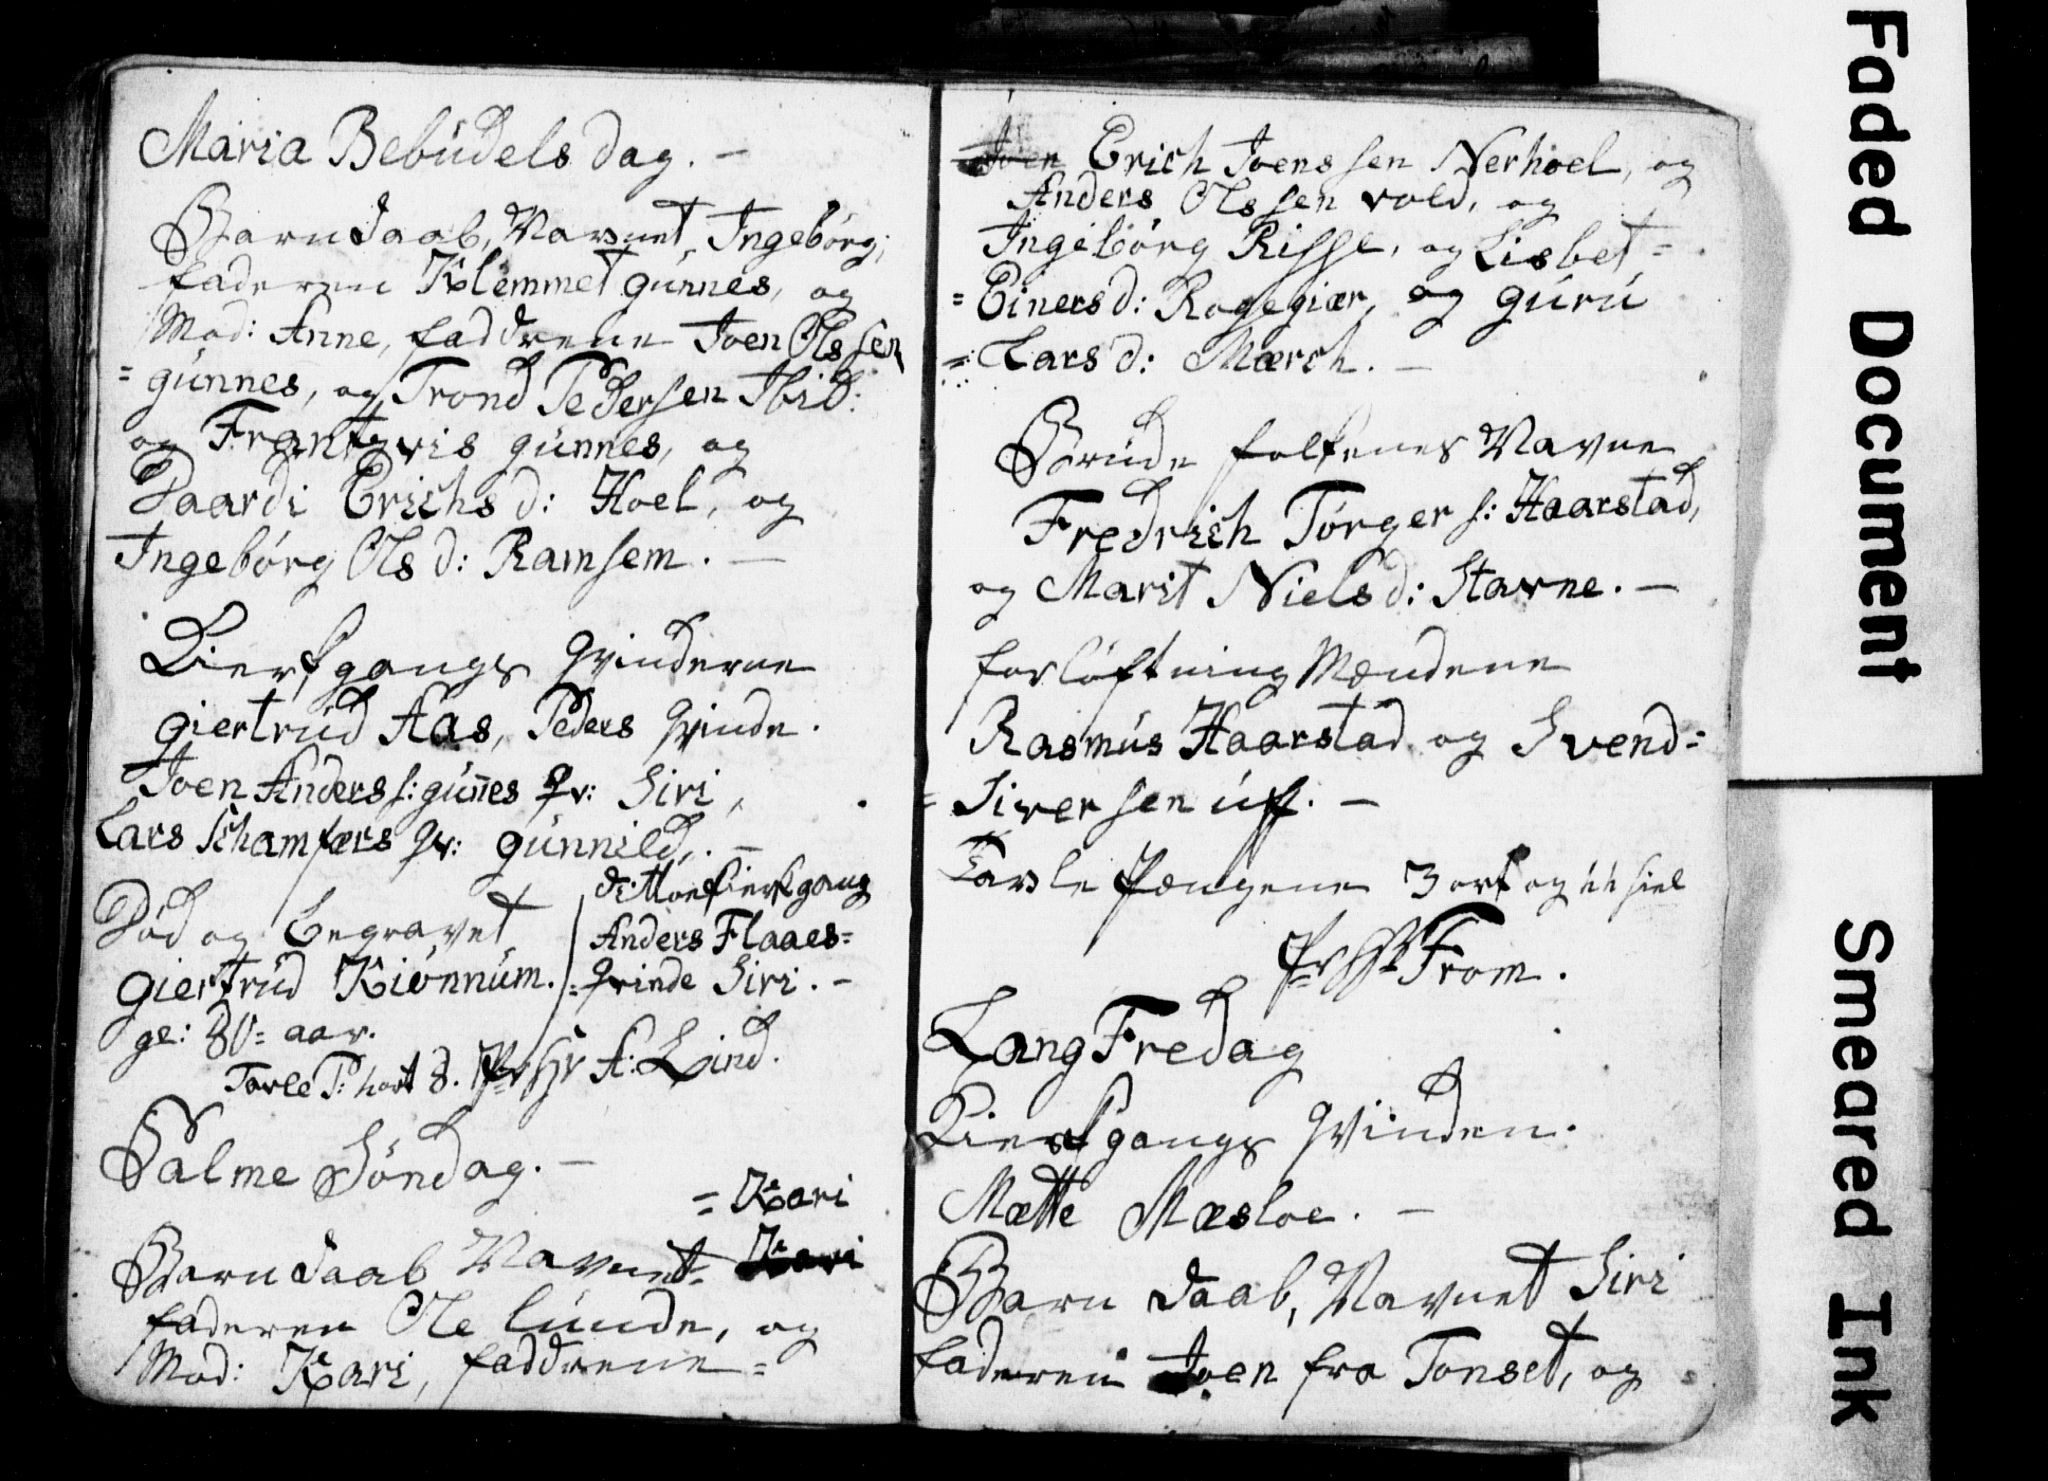 Maria Bebudels dag. -
Barn daab, Navnet, Ingebórg,
faderen Klemmet gunnes, og
Mod: Anne, faddrene Joen Olssen
= gunnes, og Trond Pedersen Ibid:
og Frantzvis gunnes, og
Paardi Erichs d: Hoel, og
Ingebórg Ols d: Ramsem. -
Kierkgangs Qvinderne
giertrud Aas, Peders Qvinde.
Joen Anders s: guñes Qv: Siri,
Lars Schamfærs Qv: gunnild,. -
Død og begravet
giertrud Kiónnum.
gl: 80 = aar.
ditto Kierkgang
Anders Flaaes =
= Qvinde Siri. -
Tavle P: 1 ort 8. Pr Hr A: Lind.
Palme Sóndag. -
= Kari
Barn daab Navnet = Kari
faderen Ole lunde, og
Mod: Kari, faddrene =
Joen Erich Joenssen Nerhoel, og
Anders Olssen vold, og
Ingebórg Risse, og Lisbet =
= Einers d: Rogegiær, og guru
= Lars d: Mærch. -
Brude folkenes Navne
Fredrich Tórger s: Haarstad,
og Marit Niels d: Stavne. -
forlóftning Mændene
Rasmus Haarstad og Svend =
= Siversen uf. -
Tavle Pængene 3 ort og 11 siel
Pr Hr From.
Lang Fredag
Kierkgangs Qvinden.
Mætte Mæsloe. -
Barn daab, Navnet Siri
faderen Joen fra Tonset, og
Faded Document
Smeared Ink